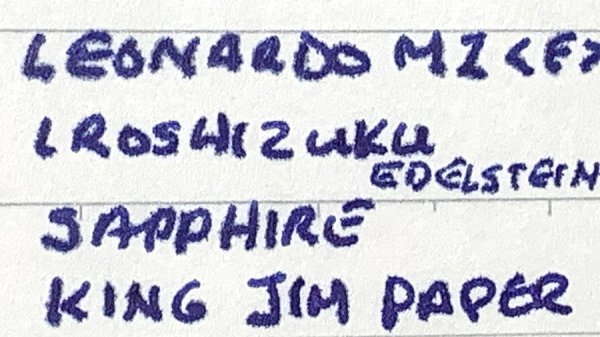 LEONARDO MZ <F>
IROSHIZUKU
EDELSTEIN
SAPPHIRE
KING JIM PAPER